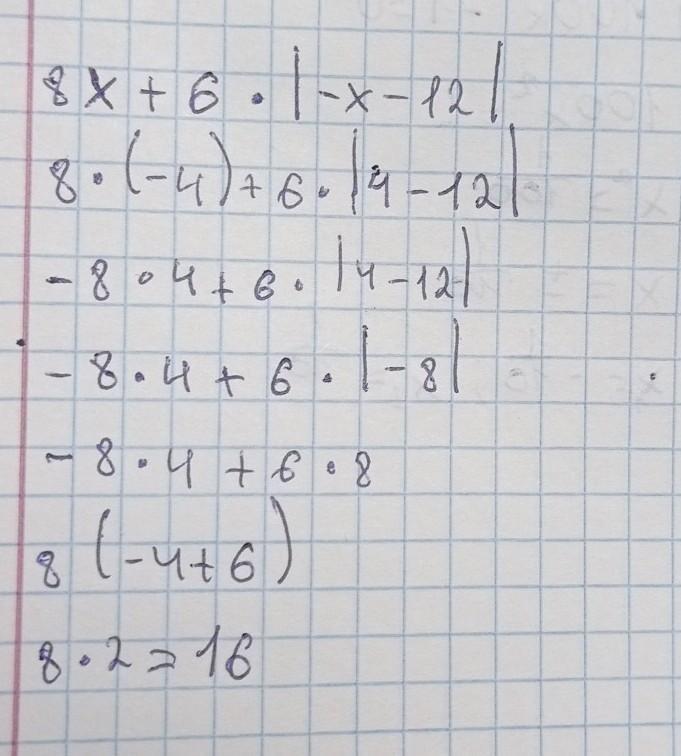 8x + 6 · |-x - 12|
8 · (-4) + 6 · |4 - 12|
- 8 · 4 + 6 · |4 - 12|
- 8 · 4 + 6 · |-8|
- 8 · 4 + 6 · 8
8 (-4 + 6)
8 · 2 = 16